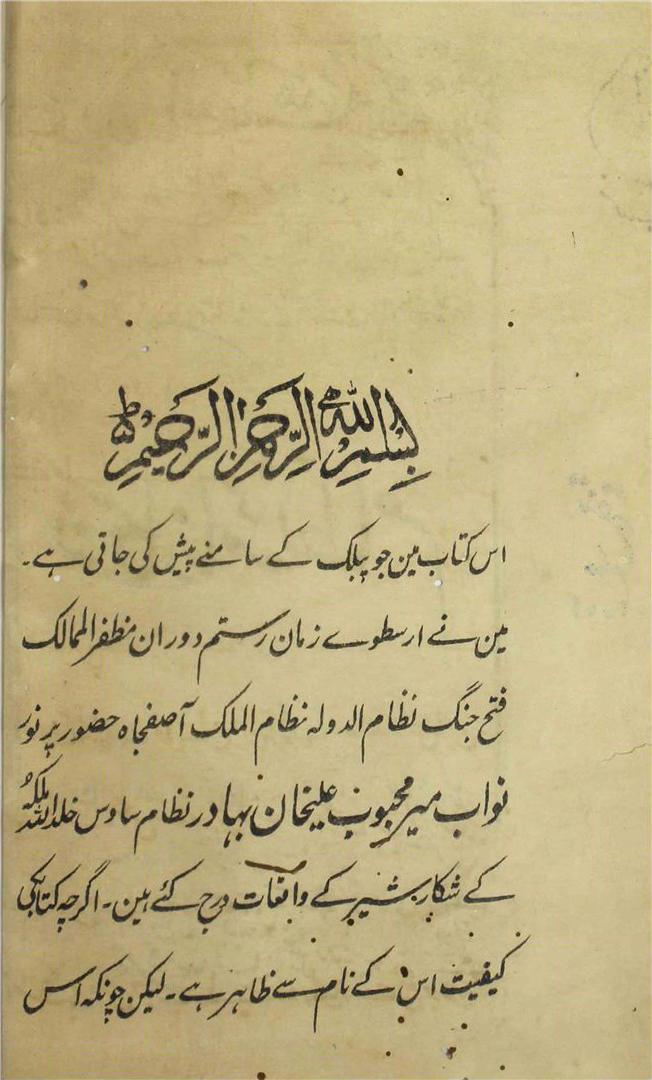 بسم الله الرحمن الرحيم ط
اس کتاب مین جو پبلک کے سامنے پیش کی جاتی ہے۔
مین نے ارسطوے زمان رستم دوران مظفر الممالک
فتح جنگ نظام الدولہ نظام الملک آصفجاہ حضور پر نور
نواب میر محبوب علیخان بہادر نظام سادس خلد اللہ ملکہ
کے شکار شیر کے واقعات درج کئے ہین۔ اگرچہ کتاب کی
کیفیت اس کے نام سے ظاہر ہے۔ لیکن چونکہ اس